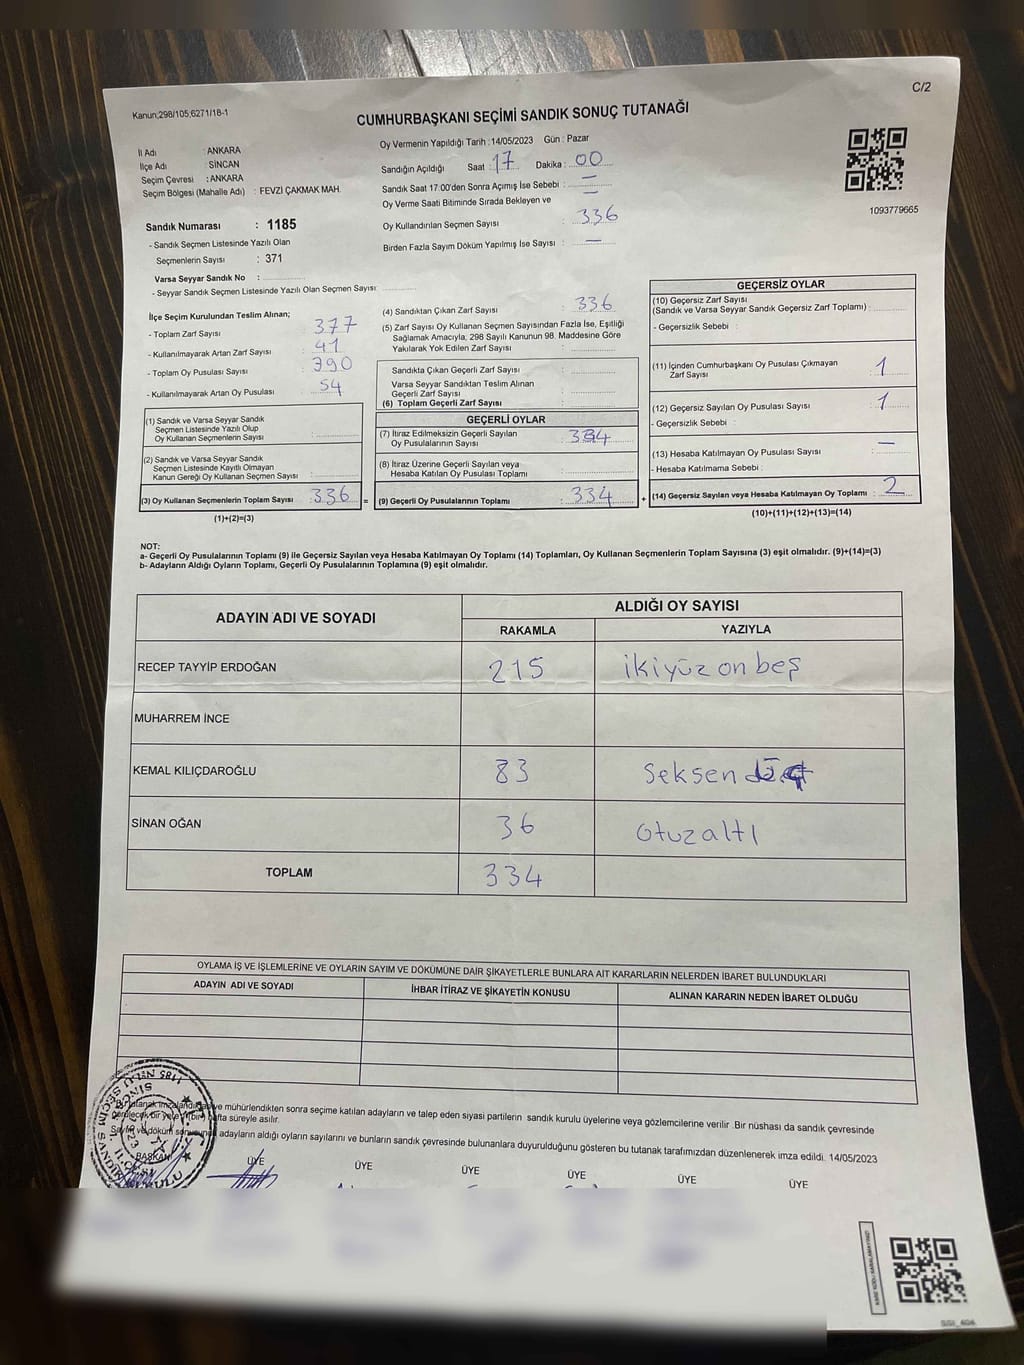 C/2
Kanun;298/105;6271/18-1
CUMHURBAŞKANI SEÇİMİ SANDIK SONUÇ TUTANAĞI
İl Adı : ANKARA
İlçe Adı : SİNCAN
Seçim Çevresi : ANKARA
Seçim Bölgesi (Mahalle Adı) : FEVZİ ÇAKMAK MAH.
Oy Vermenin Yapıldığı Tarih : 14/05/2023 Gün : Pazar
Sandığın Açıldığı Saat : 17 Dakika : 00
Sandık Saat 17:00'den Sonra Açımış İse Sebebi : —
Oy Verme Saati Bitiminde Sırada Bekleyen ve —
Oy Kullandırılan Seçmen Sayısı : 336
Birden Fazla Sayım Döküm Yapılmış İse Sayısı : —
1093779665
Sandık Numarası : 1185
- Sandık Seçmen Listesinde Yazılı Olan
Seçmenlerin Sayısı : 371
Varsa Seyyar Sandık No :
- Seyyar Sandık Seçmen Listesinde Yazılı Olan Seçmen Sayısı:
İlçe Seçim Kurulundan Teslim Alınan;
- Toplam Zarf Sayısı : 377
- Kullanılmayarak Artan Zarf Sayısı : 41
- Toplam Oy Pusulası Sayısı : 390
- Kullanılmayarak Artan Oy Pusulası : 54
(1) Sandık ve Varsa Seyyar Sandık
Seçmen Listesinde Yazılı Olup
Oy Kullanan Seçmenlerin Sayısı :
(2) Sandık ve Varsa Seyyar Sandık
Seçmen Listesinde Kayıtlı Olmayan
Kanun Gereği Oy Kullanan Seçmen Sayısı :
(3) Oy Kullanan Seçmenlerin Toplam Sayısı : 336 =
(1)+(2)=(3)
(4) Sandıktan Çıkan Zarf Sayısı : 336
(5) Zarf Sayısı Oy Kullanan Seçmen Sayısından Fazla İse, Eşitliği
Sağlamak Amacıyla, 298 Sayılı Kanunun 98. Maddesine Göre
Yakılarak Yok Edilen Zarf Sayısı :
Sandıkta Çıkan Geçerli Zarf Sayısı :
Varsa Seyyar Sandıktan Teslim Alınan
Geçerli Zarf Sayısı :
(6) Toplam Geçerli Zarf Sayısı :
GEÇERLİ OYLAR
(7) İtiraz Edilmeksizin Geçerli Sayılan
Oy Pusulalarının Sayısı : 334
(8) İtiraz Üzerine Geçerli Sayılan veya
Hesaba Katılan Oy Pusulası Toplamı :
(9) Geçerli Oy Pusulalarının Toplamı : 334 +
GEÇERSİZ OYLAR
(10) Geçersiz Zarf Sayısı
(Sandık ve Varsa Seyyar Sandık Geçersiz Zarf Toplamı) :
- Geçersizlik Sebebi :
(11) İçinden Cumhurbaşkanı Oy Pusulası Çıkmayan
Zarf Sayısı : 1
(12) Geçersiz Sayılan Oy Pusulası Sayısı : 1
- Geçersizlik Sebebi :
(13) Hesaba Katılmayan Oy Pusulası Sayısı : —
- Hesaba Katılmama Sebebi :
(14) Geçersiz Sayılan veya Hesaba Katılmayan Oy Toplamı : 2
(10)+(11)+(12)+(13)=(14)
NOT:
a- Geçerli Oy Pusulalarının Toplamı (9) ile Geçersiz Sayılan veya Hesaba Katılmayan Oy Toplamı (14) Toplamları, Oy Kullanan Seçmenlerin Toplam Sayısına (3) eşit olmalıdır. (9)+(14)=(3)
b- Adayların Aldığı Oyların Toplamı, Geçerli Oy Pusulalarının Toplamına (9) eşit olmalıdır.
ADAYIN ADI VE SOYADI
ALDIĞI OY SAYISI
RAKAMLA YAZIYLA
RECEP TAYYİP ERDOĞAN 215 ikiyüz on beş
MUHARREM İNCE
KEMAL KILIÇDAROĞLU 83 Seksen
SİNAN OĞAN 36 otuzaltı
TOPLAM 334
OYLAMA İŞ VE İŞLEMLERİNE VE OYLARIN SAYIM VE DÖKÜMÜNE DAİR ŞİKAYETLERLE BUNLARA AİT KARARLARIN NELERDEN İBARET BULUNDUKLARI
ADAYIN ADI VE SOYADI İHBAR İTİRAZ VE ŞİKAYETİN KONUSU ALINAN KARARIN NEDEN İBARET OLDUĞU
ve mühürlendikten sonra seçime katılan adayların ve talep eden siyasi partilerin sandık kurulu üyelerine veya gözlemcilerine verilir .Bir nüshası da sandık çevresinde
hafta süreyle asılır.
adayların aldığı oyların sayılarını ve bunların sandık çevresinde bulunanlara duyurulduğunu gösteren bu tutanak tarafımızdan düzenlenerek imza edildi. 14/05/2023
BAŞKAN ÜYE ÜYE ÜYE ÜYE ÜYE ÜYE